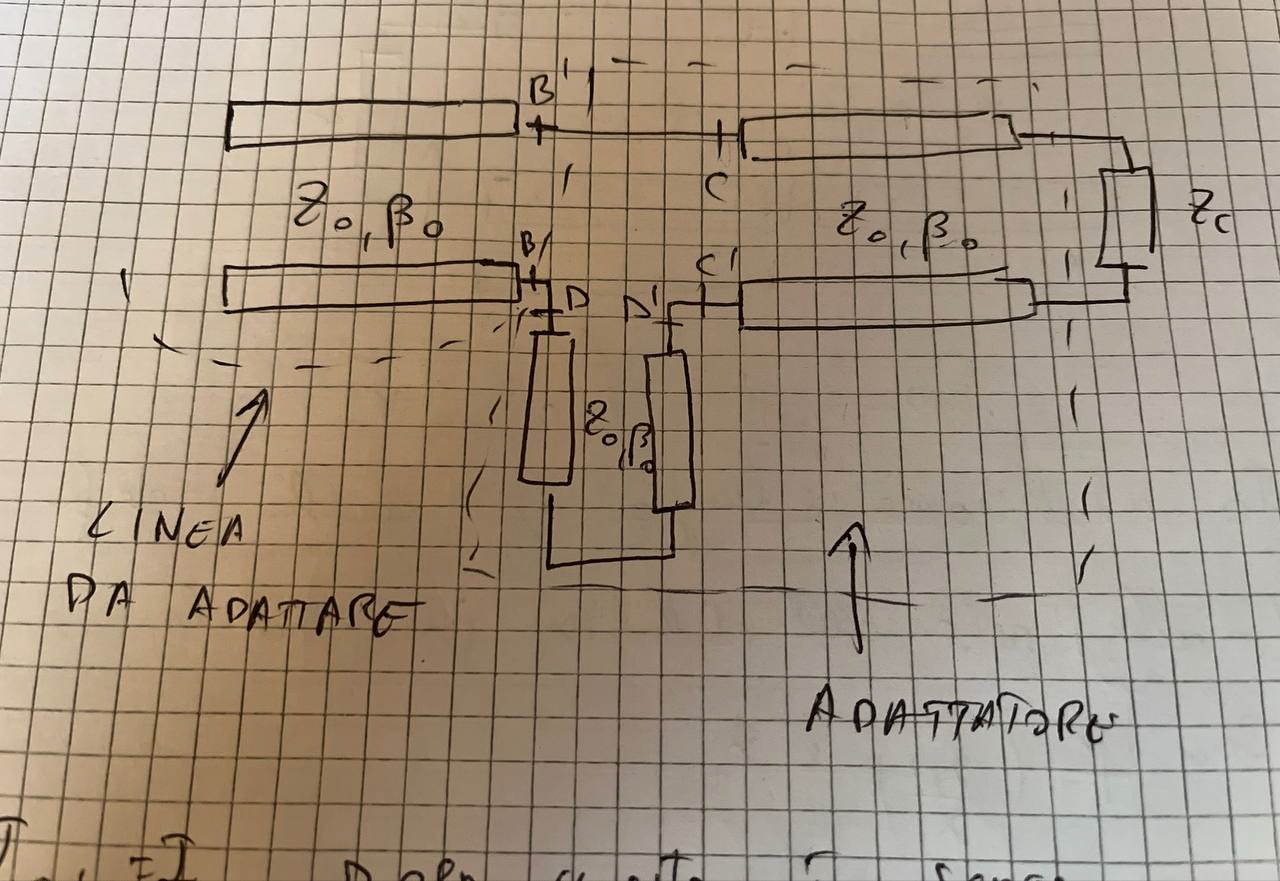 B'
C
Z₀, β₀
Z₀, β₀
Zc
B'
D
D'
C'
Z₀, β₀
LINEA
DA ADATTARE
ADATTATORE